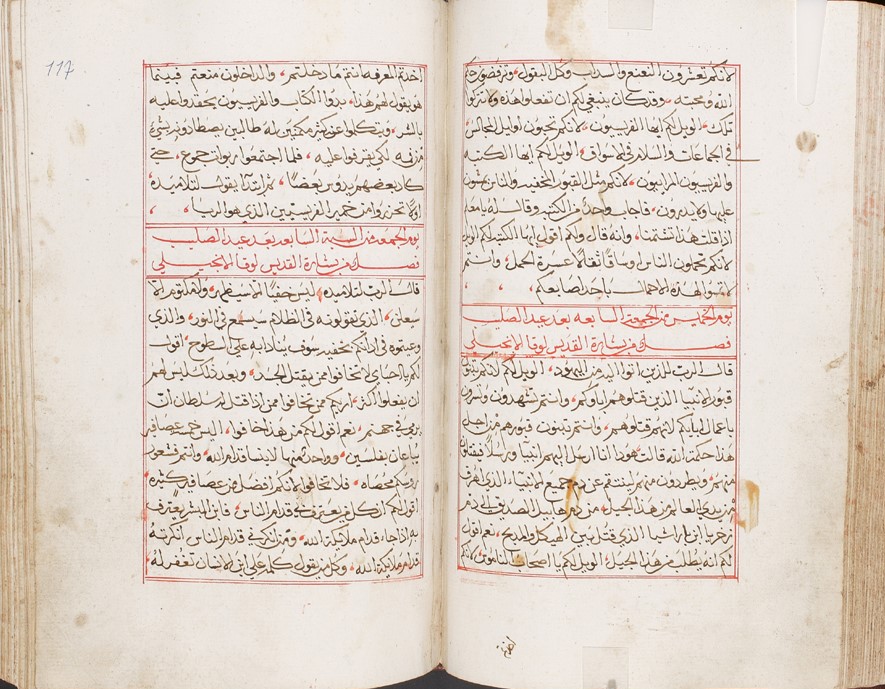 لانكم تعشرون النعنع والسداب وكل البقول، وترفضون حكم
الله ومحبته، وقد كان ينبغي لكم ان تفعلوا هذه ولا تتركوا
تلك، الويل لكم ايها الفريسيون، لانكم تحبون اوايل المجالس
في الجماعات والسلام في الاسواق، الويل لكم ايها الكتبه
والفريسيون المرايون، لانكم مثل القبور المخفيه والناس يمشون
عليها ولا يدرون، فاجاب واحد من الكتبه وقال له يا معلم
اذا قلت هذا تشتمنا، وانه قال ولكم اقول ايها الكتبه لكم الويل
لانكم تحملون الناس اوساقا ثقالا عسرة الحمل، وانتم
لا تدنوا لهذه الاحمال باحد اصابعكم،
يوم الخميس من الجمعه السابعه بعد عيد الصليب
فصل من بشارة القديس لوقا الانجيلي
قال الرب للذين اتوا اليه من اليهود، الويل لكم لانكم تبنون
قبور الانبيا الذين قتلوهم اباوكم، وانتم تشهدون وتسرون
باعمال ابايكم لانهم قتلوهم، وانتم تبنون قبورهم من اجل
هذا حكمت الله قالت هودا انا ارسل اليهم انبيا ورسلا فيقتلون
منهم ويطردون منهم لينتقم عن دم جميع الانبياء الذي اهرق
من بدي العالم من هذا الجيل، من دم هابيل الصديق الى دم
زخريا ابن براشيا الذي قتل بين الهيكل والمدبح، نعم اقول
لكم انه يطلب من هذا الجيل، الويل لكم يا اصحاب الناموس، لانكم
117
اخدتم المعرفه انتم ما دخلتم، والداخلون منعتم فبينما
هو يقول لهم هذا، بدوا الكتاب والفريسيون يحقدوا عليه
بالشر، ويتكلموا عن كثير مكتمين له طالبين يصطادونه بشي
من فيه لكي يقرفوا عليه، فلما اجتمعوا ربوات جموع، حتي
كاد بعضهم يدوس بعضا، ثم ابتدا يقول لتلاميده
اولا تحرزوا من خمير الفريسيين الذي هو الريا،
يوم الجمعه من السبة السابعه بعد عيد الصليب
فصل من بشارة القديس لوقا الانجيلي
قال الرب لتلاميده ليس خفيا الا سيظهر، ولا مكتوم الا
سيعلن، الذي تقولونه في الظلام سيسمع في النور، والذي
وعيتموه في ادانكم بخفيه سوف ينادا به على السطوح، اقول
لكم يا احباي لا تخافوا ممن يقتل الجسد، وبعد ذلك ليس لهم
ان يفعلوا اكثر، اريكم ممن تخافوا ممن اذا قتل له سلطان ان
يرمي في جهنم، نعم اقول لكم من هذا خافوا، اليس خمسه عصافير
تباعان بفلسين، وواحد منها لا ينسا قدام الله، وانتم فشعور
روسكم محصاه، فلا تخافوا لانكم افضل من عصافير كثيره
اقول لكم ان كل من يعترف بي قدام الناس، فابن البشر يعترف
به اذا جاء قدام ملايكة الله، ومن انكرني قدام الناس انكرته
قدام ملايكة الله، وكل من يقول كلمه على ابن الانسان تغفر له